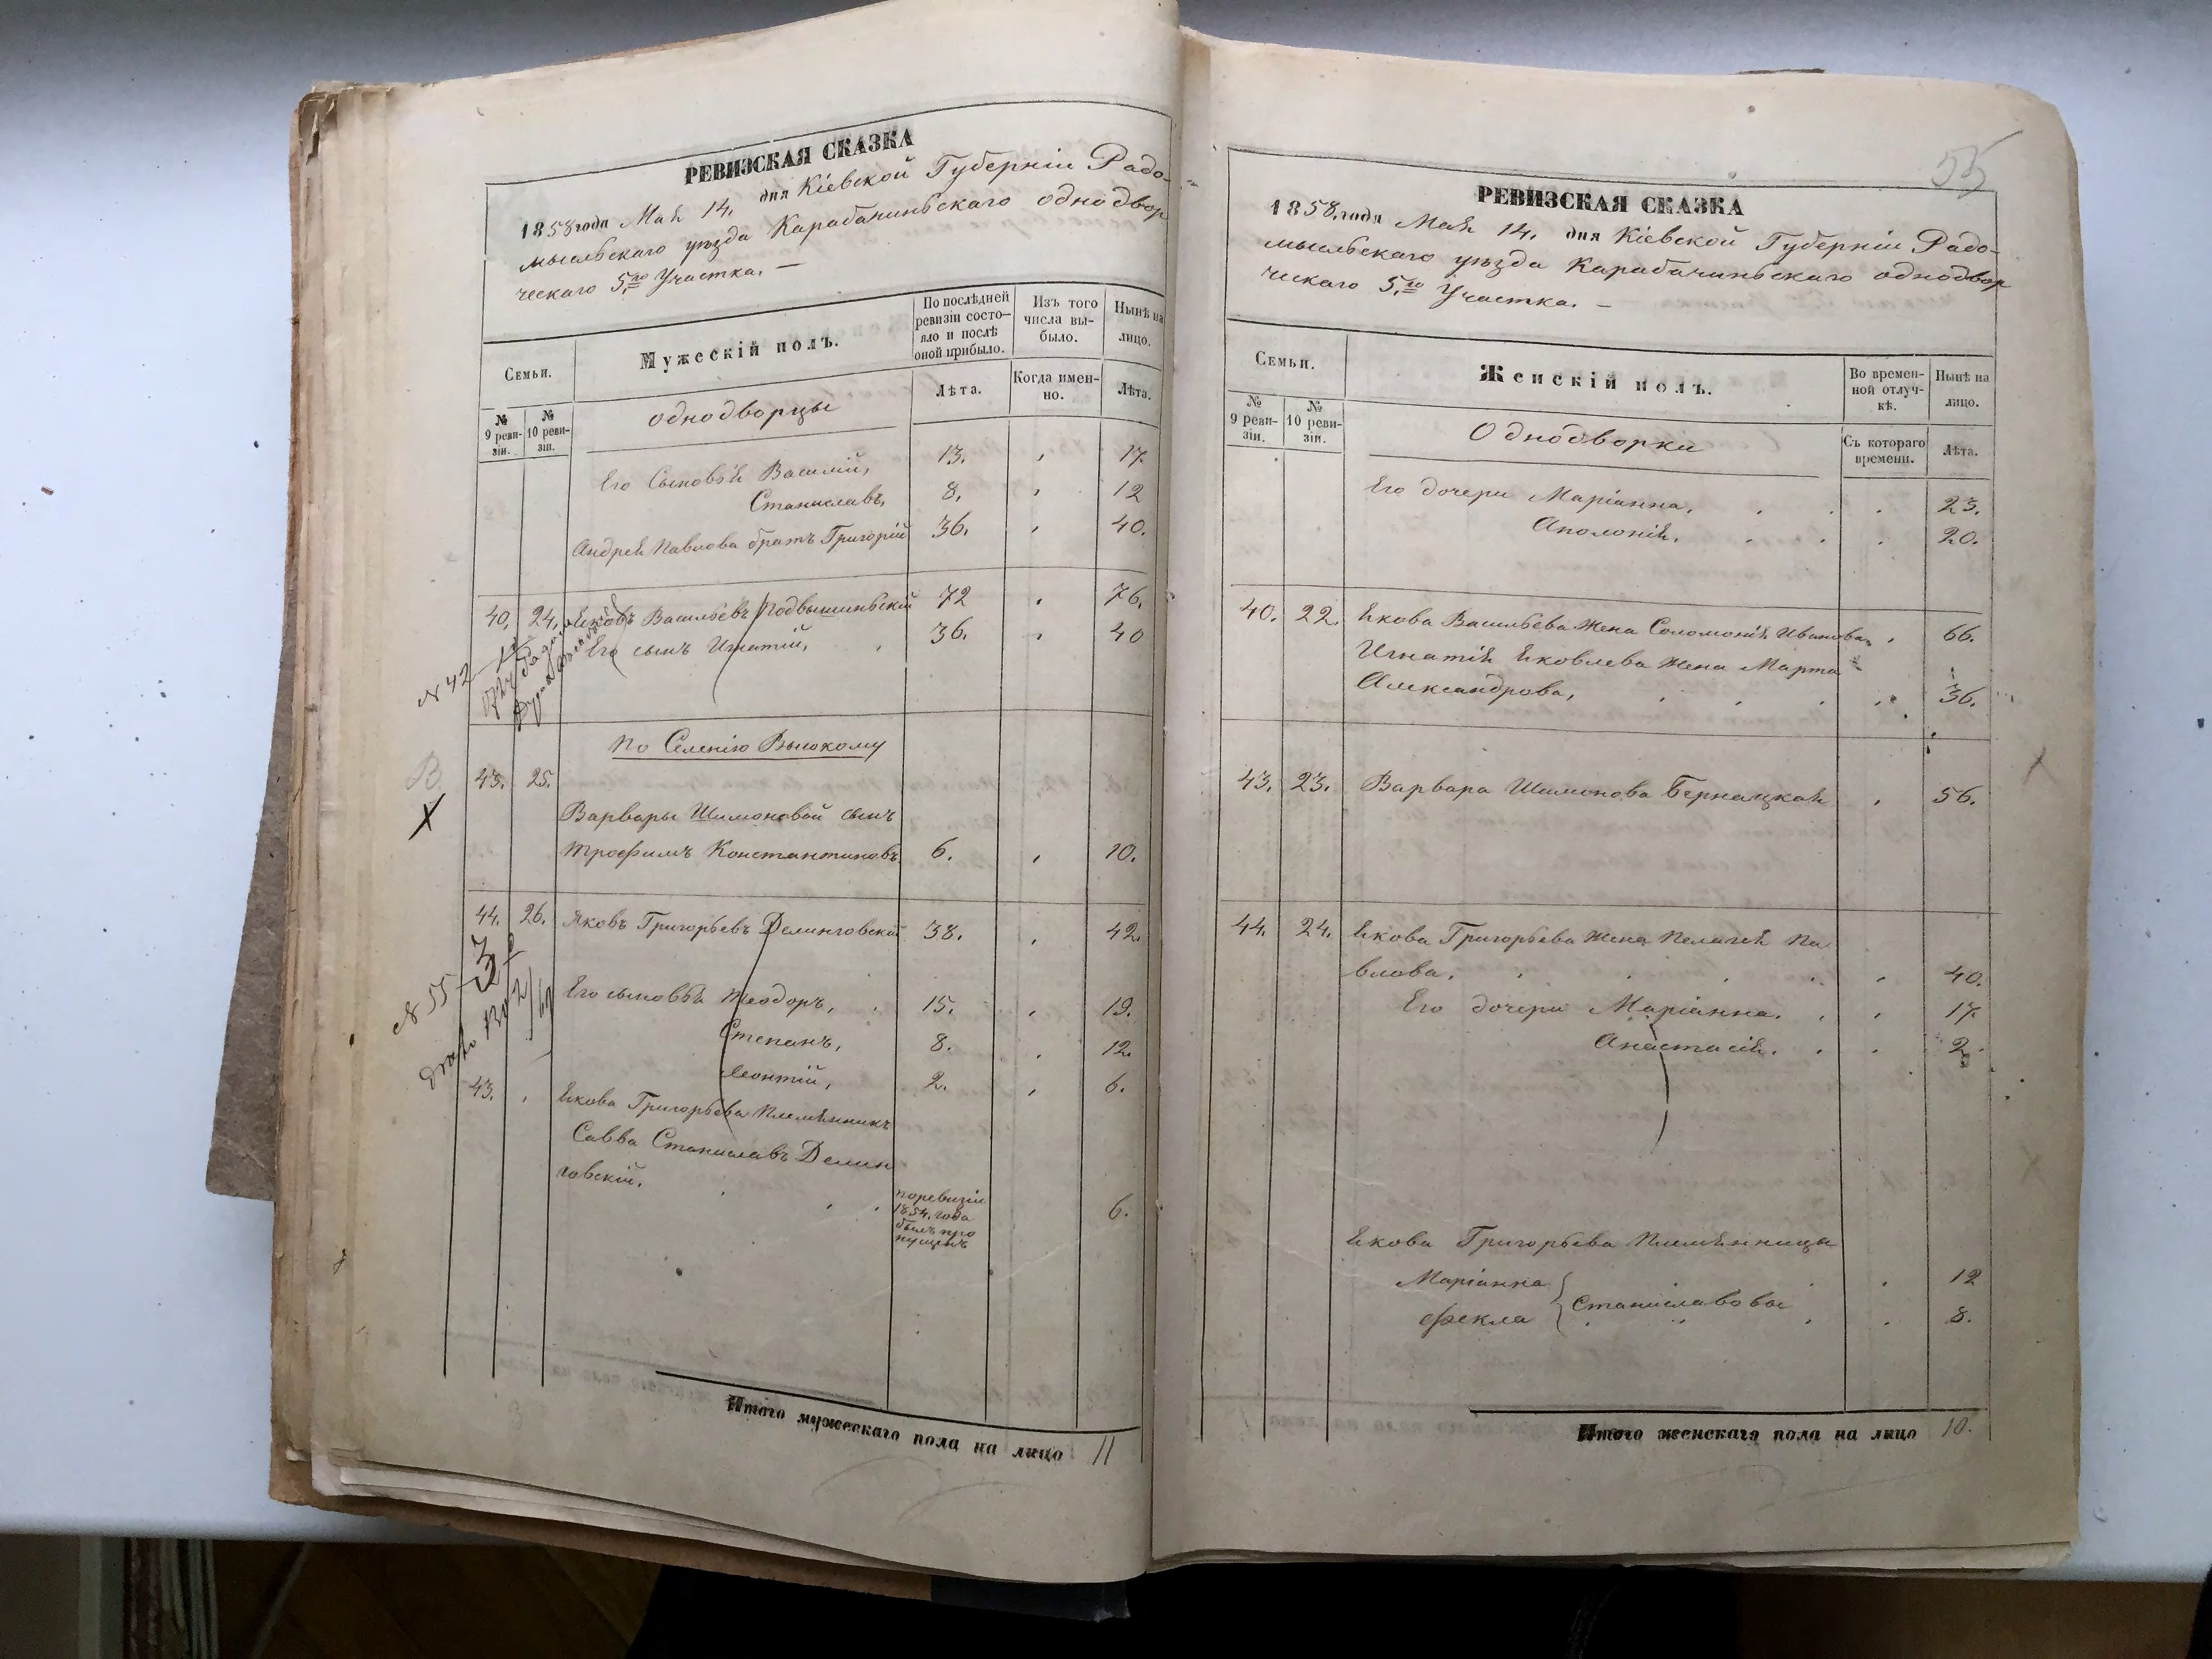 РЕВИЗСКАЯ СКАЗКА
1858 года Мая 14. дня Кіевской Губерніи Радо-
мысльскаго уѣзда Карабачинскаго однодвор
ческаго 5го Участка. —
Семьи.
Мужескій полъ.
По послѣдней ревизіи состо-
яло и послѣ
оной прибыло.
Изъ того
числа вы-
было.
Нынѣ на
лицо.
№
9 реви-
зіи.
№
10 реви-
зіи.
однодворцы
Лѣта.
Когда имен-
но.
Лѣта.
Его Сыновья Василій, 13. 17.
Станиславъ, 8. 12
Андрея Павлова братъ Григорій 36. 40.
40. 24. Яковъ Васильевъ Подвышинскій 72 76.
Его сынъ Игнатій, 36. 40
N 42
По Селенію Высокому
43. 25.
Варвары Шимоновой сынъ
Трофимъ Константиновъ 6. 10.
44. 26. Яковъ Григорьевъ Делинговскій 38. 42.
N 55
Его сыновья Теодоръ, 15. 19.
Степанъ, 8. 12.
Леонтій, 2. 6.
43. Якова Григорьева племянникъ
Савва Станиславъ Делин
говскій.
поревизіи
1854. года
былъ про
пущенъ
6.
Итого мужескаго пола на лицо 11
55
РЕВИЗСКАЯ СКАЗКА
1858. года Мая 14. дня Кіевской Губерніи Радо-
мысльскаго уѣзда Карабачинскаго однодвор
ческаго 5го Участка. —
Семьи.
Женскій полъ.
Во времен-
ной отлуч-
кѣ.
Нынѣ на
лицо.
№
9 реви-
зіи.
№
10 реви-
зіи.
Однодворки
Съ котораго
времени.
Лѣта.
Его дочери Маріанна, 23.
Аполонія, 20.
40. 22. Якова Васильева жена Соломонія Иванова, 66.
Игнатія Яковлева жена Марта
Александрова, 36.
43. 23. Варвара Шимонова Бернацкая 56.
44. 24. Якова Григорьева жена Пелагея Па
влова. 40.
Его дочери Маріанна. 17.
Анастасія. 2.
Якова Григорьева племянницы
Маріанна 12
Фекла } Станиславовы 8.
Итого женскаго пола на лицо 10.